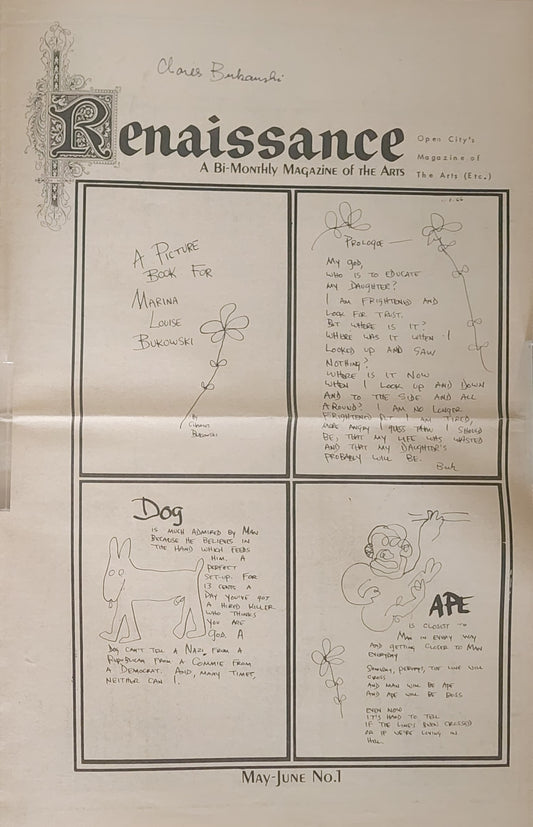 Charles Bukowski
Renaissance
A Bi-Monthly Magazine of the Arts
Open City's
Magazine of
The Arts (Etc.)
A PICTURE
BOOK FOR
MARINA
LOUISE
BUKOWSKI
BY
CHARLES
BUKOWSKI
PROLOGUE —
MY GOD,
WHO IS TO EDUCATE
MY DAUGHTER?
I AM FRIGHTENED AND
LOOK FOR TRUST.
BUT WHERE IS IT?
WHERE WAS IT WHEN I
LOOKED UP AND SAW
NOTHING?
WHERE IS IT NOW
WHEN I LOOK UP AND DOWN
AND TO THE SIDE AND ALL
AROUND? I AM NO LONGER
FRIGHTENED BUT I AM TIRED,
MORE ANGRY I GUESS THAN I SHOULD
BE, THAT MY LIFE WAS WASTED
AND THAT MY DAUGHTER'S
PROBABLY WILL BE.
Buk
DOG
IS MUCH ADMIRED BY MAN
BECAUSE HE BELIEVES IN
THE HAND WHICH FEEDS
HIM. A
PERFECT
SET-UP. FOR
13 CENTS A
DAY YOU'VE GOT
A HIRED KILLER
WHO THINKS
YOU ARE
GOD. A
DOG CAN'T TELL A NAZI FROM A
REPUBLICAN FROM A COMMIE FROM
A DEMOCRAT. AND, MANY TIMES,
NEITHER CAN I.
APE
IS CLOSEST TO
MAN IN EVERY WAY
AND GETTING CLOSER TO MAN
EVERYDAY
SOMEDAY, PERHAPS, THE LINE WILL
CROSS
AND MAN WILL BE APE
AND APE WILL BE BOSS
EVEN NOW
IT'S HARD TO TELL
IF THE LINES EVEN CROSSED
OR IF WE'RE LIVING IN
HELL.
May-June No.1